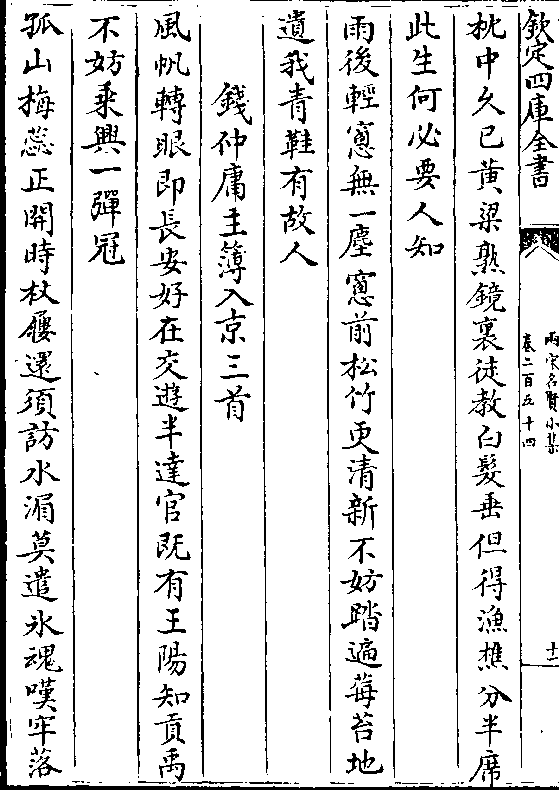 欽定四庫全書
兩宋名賢小集
卷二百五十四
十二
枕中久已黄粱熟鏡裏徒教白髮垂但得漁樵分半席
此生何必要人知
雨後輕窻無一塵窻前松竹更清新不妨踏遍莓苔地
遺我青鞋有故人
錢仲庸主簿入京三首
風帆轉眼即長安好在交遊半達官既有王陽知貢禹
不妨乗興一彈冠
孤山梅蕊正開時杖屨還須訪水湄莫遣氷魂嘆牢落